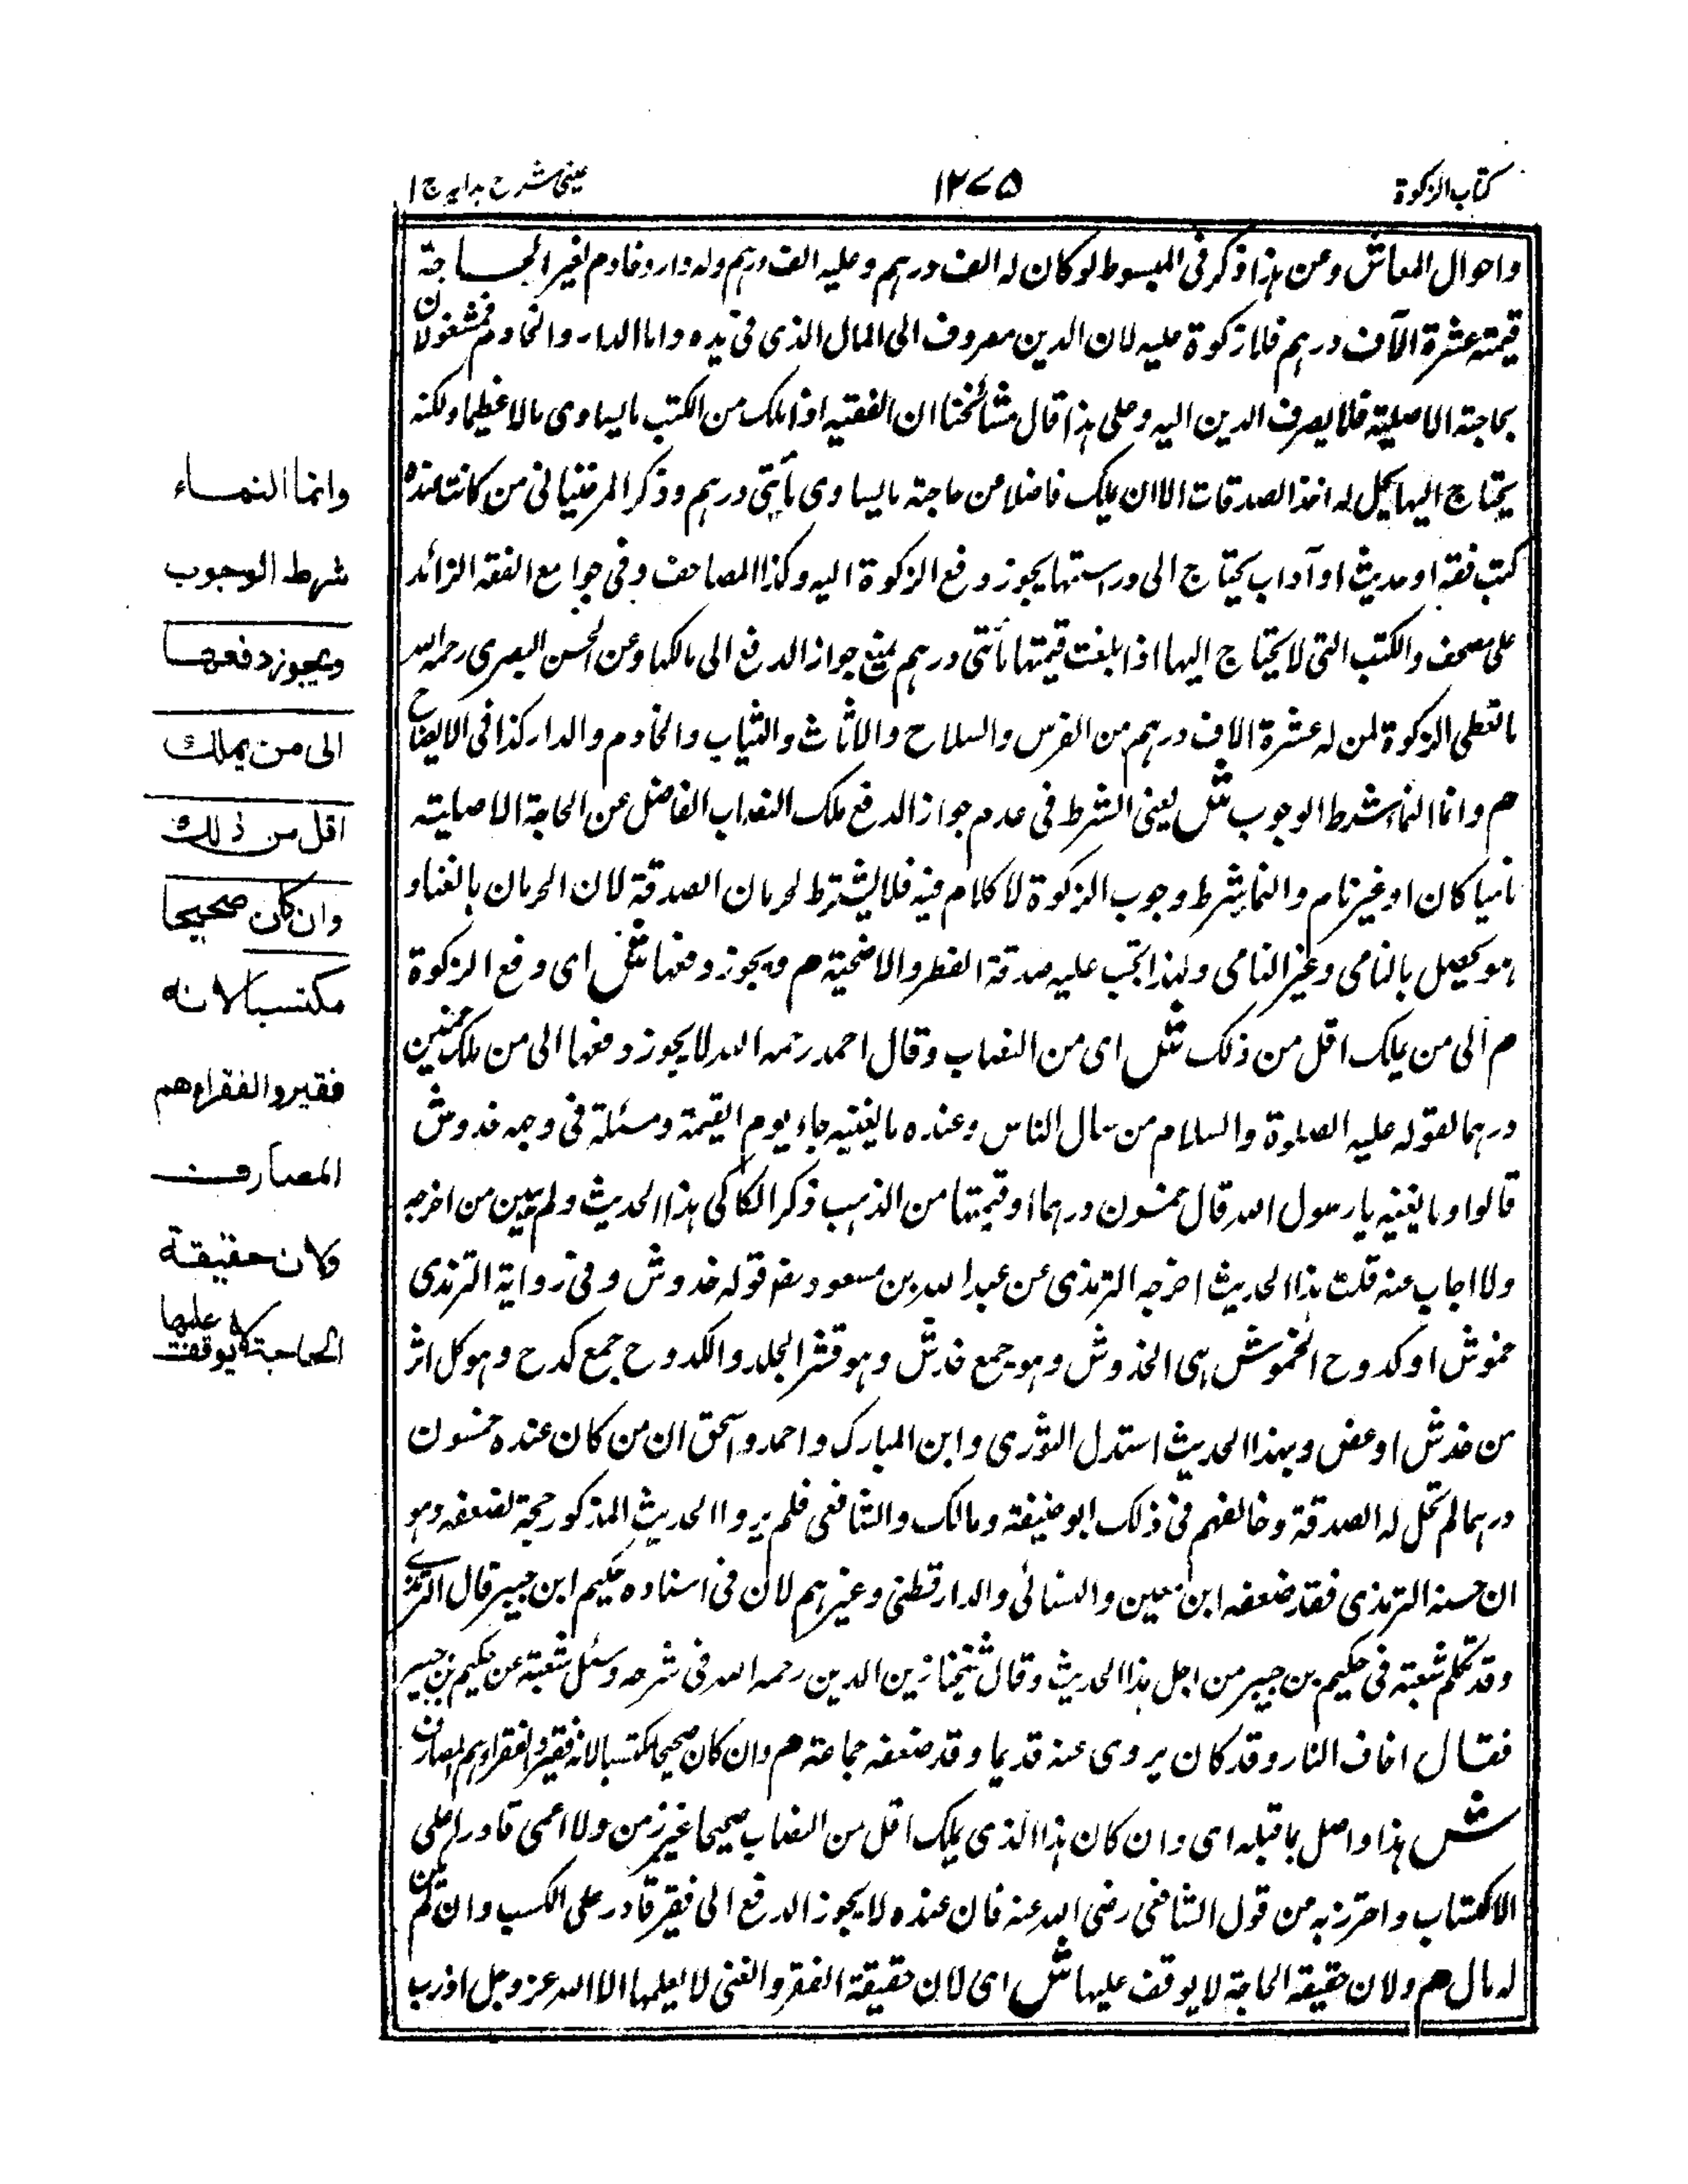 كتاب الزكوة
١٢٧٥
عينى شرح هدايه ج ١
واحوال المعاش وعن هذا ذكر فى المبسوط لو كان له الف درهم وعليه الف درهم وله دار وخادم لغير الحاجة
قيمته عشرة الآف درهم فلا زكوة عليه لان الدين مصروف الى المال الذى فى يده واما الدار والخادم فمشغولان
بحاجة الاصلية فلا يصرف الدين اليه وعلى هذا قال مشائخنا ان الفقيه اذا ملك من الكتب ما يساوى مالا عظيما ولكنه
يحتاج اليها يحل له اخذ الصدقات الا ان يملك فاضلا من حاجة ما يساوى مأتى درهم وذكر المرغينانى من كانت عنده
كتب فقه او حديث او آداب يحتاج الى دراستها يجوز دفع الزكوة اليه وكذا المصاحف وفى جوامع الفقه الزائد
على مصحف والكتب التى لا يحتاج اليها اذا بلغت قيمتها مأتى درهم يمنع جواز الدفع الى مالكها وعن الحسن البصرى رحمه الله
ما تعطى الزكوة لمن له عشرة الاف درهم من الفرس والسلاح والاثاث والثياب والخادم والدار كذا فى الايضاح
م وانما النماء شرط الوجوب ش يعنى الشرط فى عدم جواز الدفع ملك النصاب الفاضل عن الحاجة الاصلية
ناميا كان او غير نام والنماء شرط وجوب الزكوة لا كلام فيه فلا يشترط لحرمان الصدقة لان الحرمان بالغناء و
هو يحصل بالنامى وغير النامى ولهذا تجب عليه صدقة الفطر والاضحية م ويجوز دفعها ش اى دفع الزكوة
م الى من يملك اقل من ذلك ش اى من النصاب وقال احمد رحمه الله لا يجوز دفعها الى من ملك خمسين
درهما لقوله عليه الصلوة والسلام من سال الناس وعنده ما يغنيه جاء يوم القيمة ومسئلة فى وجهه خدوش
قالوا وما يغنيه يا رسول الله قال خمسون درهما او قيمتها من الذهب ذكر الكاكى هذا الحديث ولم يبين من اخرجه
ولا اجاب عنه قلت هذا الحديث اخرجه الترمذى عن عبد الله بن مسعود رضـ قوله خدوش وفى رواية الترمذى
خموش او كدوح الخموش هى الخدوش وهو جمع خدش وهو قشر الجلد والكدوح جمع كدح وهو كل اثر
من خدش او عض وبهذا الحديث استدل الثورى وابن المبارك واحمد واسحق ان من كان عنده خمسون
درهما لم تحل له الصدقة وخالفهم فى ذلك ابو حنيفة ومالك والشافعى فلم يروا الحديث المذكور حجة لضعفه وهو
ان حسنه الترمذى فقد ضعفه ابن معين والنسائى والدارقطنى وغيرهم لان فى اسناده حكيم ابن جبير قال الترمذى
وقد تكلم شعبة فى حكيم بن جبير من اجل هذا الحديث وقال شيخنا زين الدين رحمه الله فى شرحه وسئل شعبة عن حكيم بن جبير
فقال اخاف النار وقد كان يروى عنه قديما وقد ضعفه جماعة م وان كان صحيحا مكتسبا لانه فقير والفقراء هم المصارف
ش هذا واصل بما قبله اى وان كان هذا الذى يملك اقل من النصاب صحيحا غير زمن ولا اعمى قادرا على
الاكتساب واحترز به من قول الشافعى رضى الله عنه فان عنده لا يجوز الدفع الى فقير قادر على الكسب وان لم يكن
له مال م ولان حقيقة الحاجة لا يوقف عليها ش اى لان حقيقة الفقر والغنى لا يعلمها الا الله عز وجل اذ رب
وانما النمـاء
شرط الوجوب
ويجوز دفعهـا
الى من يملك
اقل من ذلك
وان كان صحيحا
مكتسبا لانه
فقير والفقراء هم
المصارف
ولان حقيقة
الحاجة لا يوقف عليها